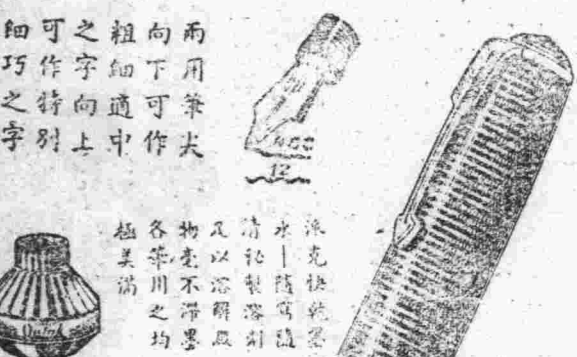 兩用筆尖
向下可作
粗細適中
之字向上
可作特別
細巧之字
派克快乾墨
水—隨寫隨
清秘製溶劑
足以溶解殿
物毫不滯墨
各筆用之均
極美滿
Quink